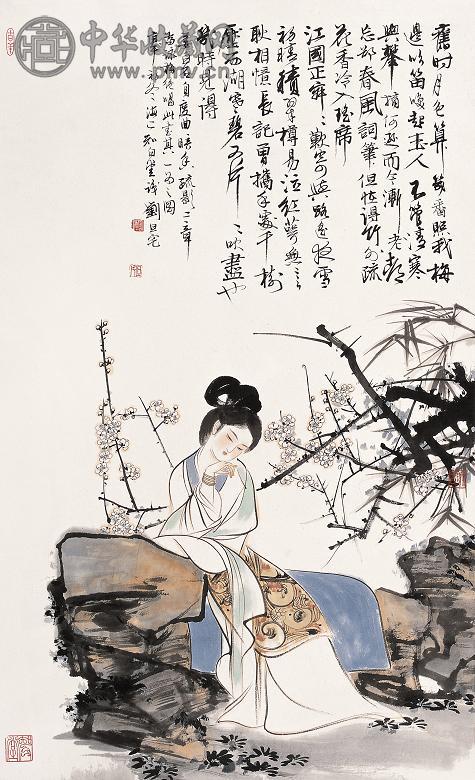 舊時月色算幾番照我梅
邊吹笛喚起玉人不管清寒
與攀摘何遜而今漸老都
忘卻春風詞筆但怪得竹外疏
花香冷入瑤席
江國正寂〻歎寄與路遙夜雪
初積翠樽易泣紅萼無言
耿相憶長記曾攜手處千樹
壓西湖寒碧又片〻吹盡也
幾時見得
姜白石自度曲暗香疏影二章
詠梅絕唱此其一之圖
海上知白堂識劉旦宅
中华收藏网